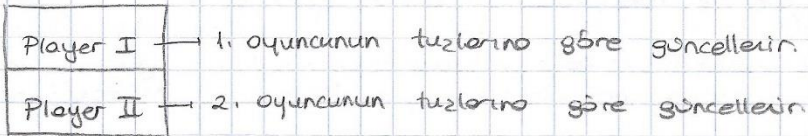 Player I → 1. oyuncunun tuşlarına göre güncellenir.
Player II → 2. oyuncunun tuşlarına göre güncellenir.